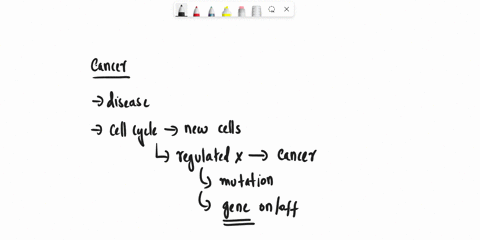 Cancer
→ disease
→ cell cycle → new cells
↳ regulated x → cancer
↳ mutation
↳ gene on/off